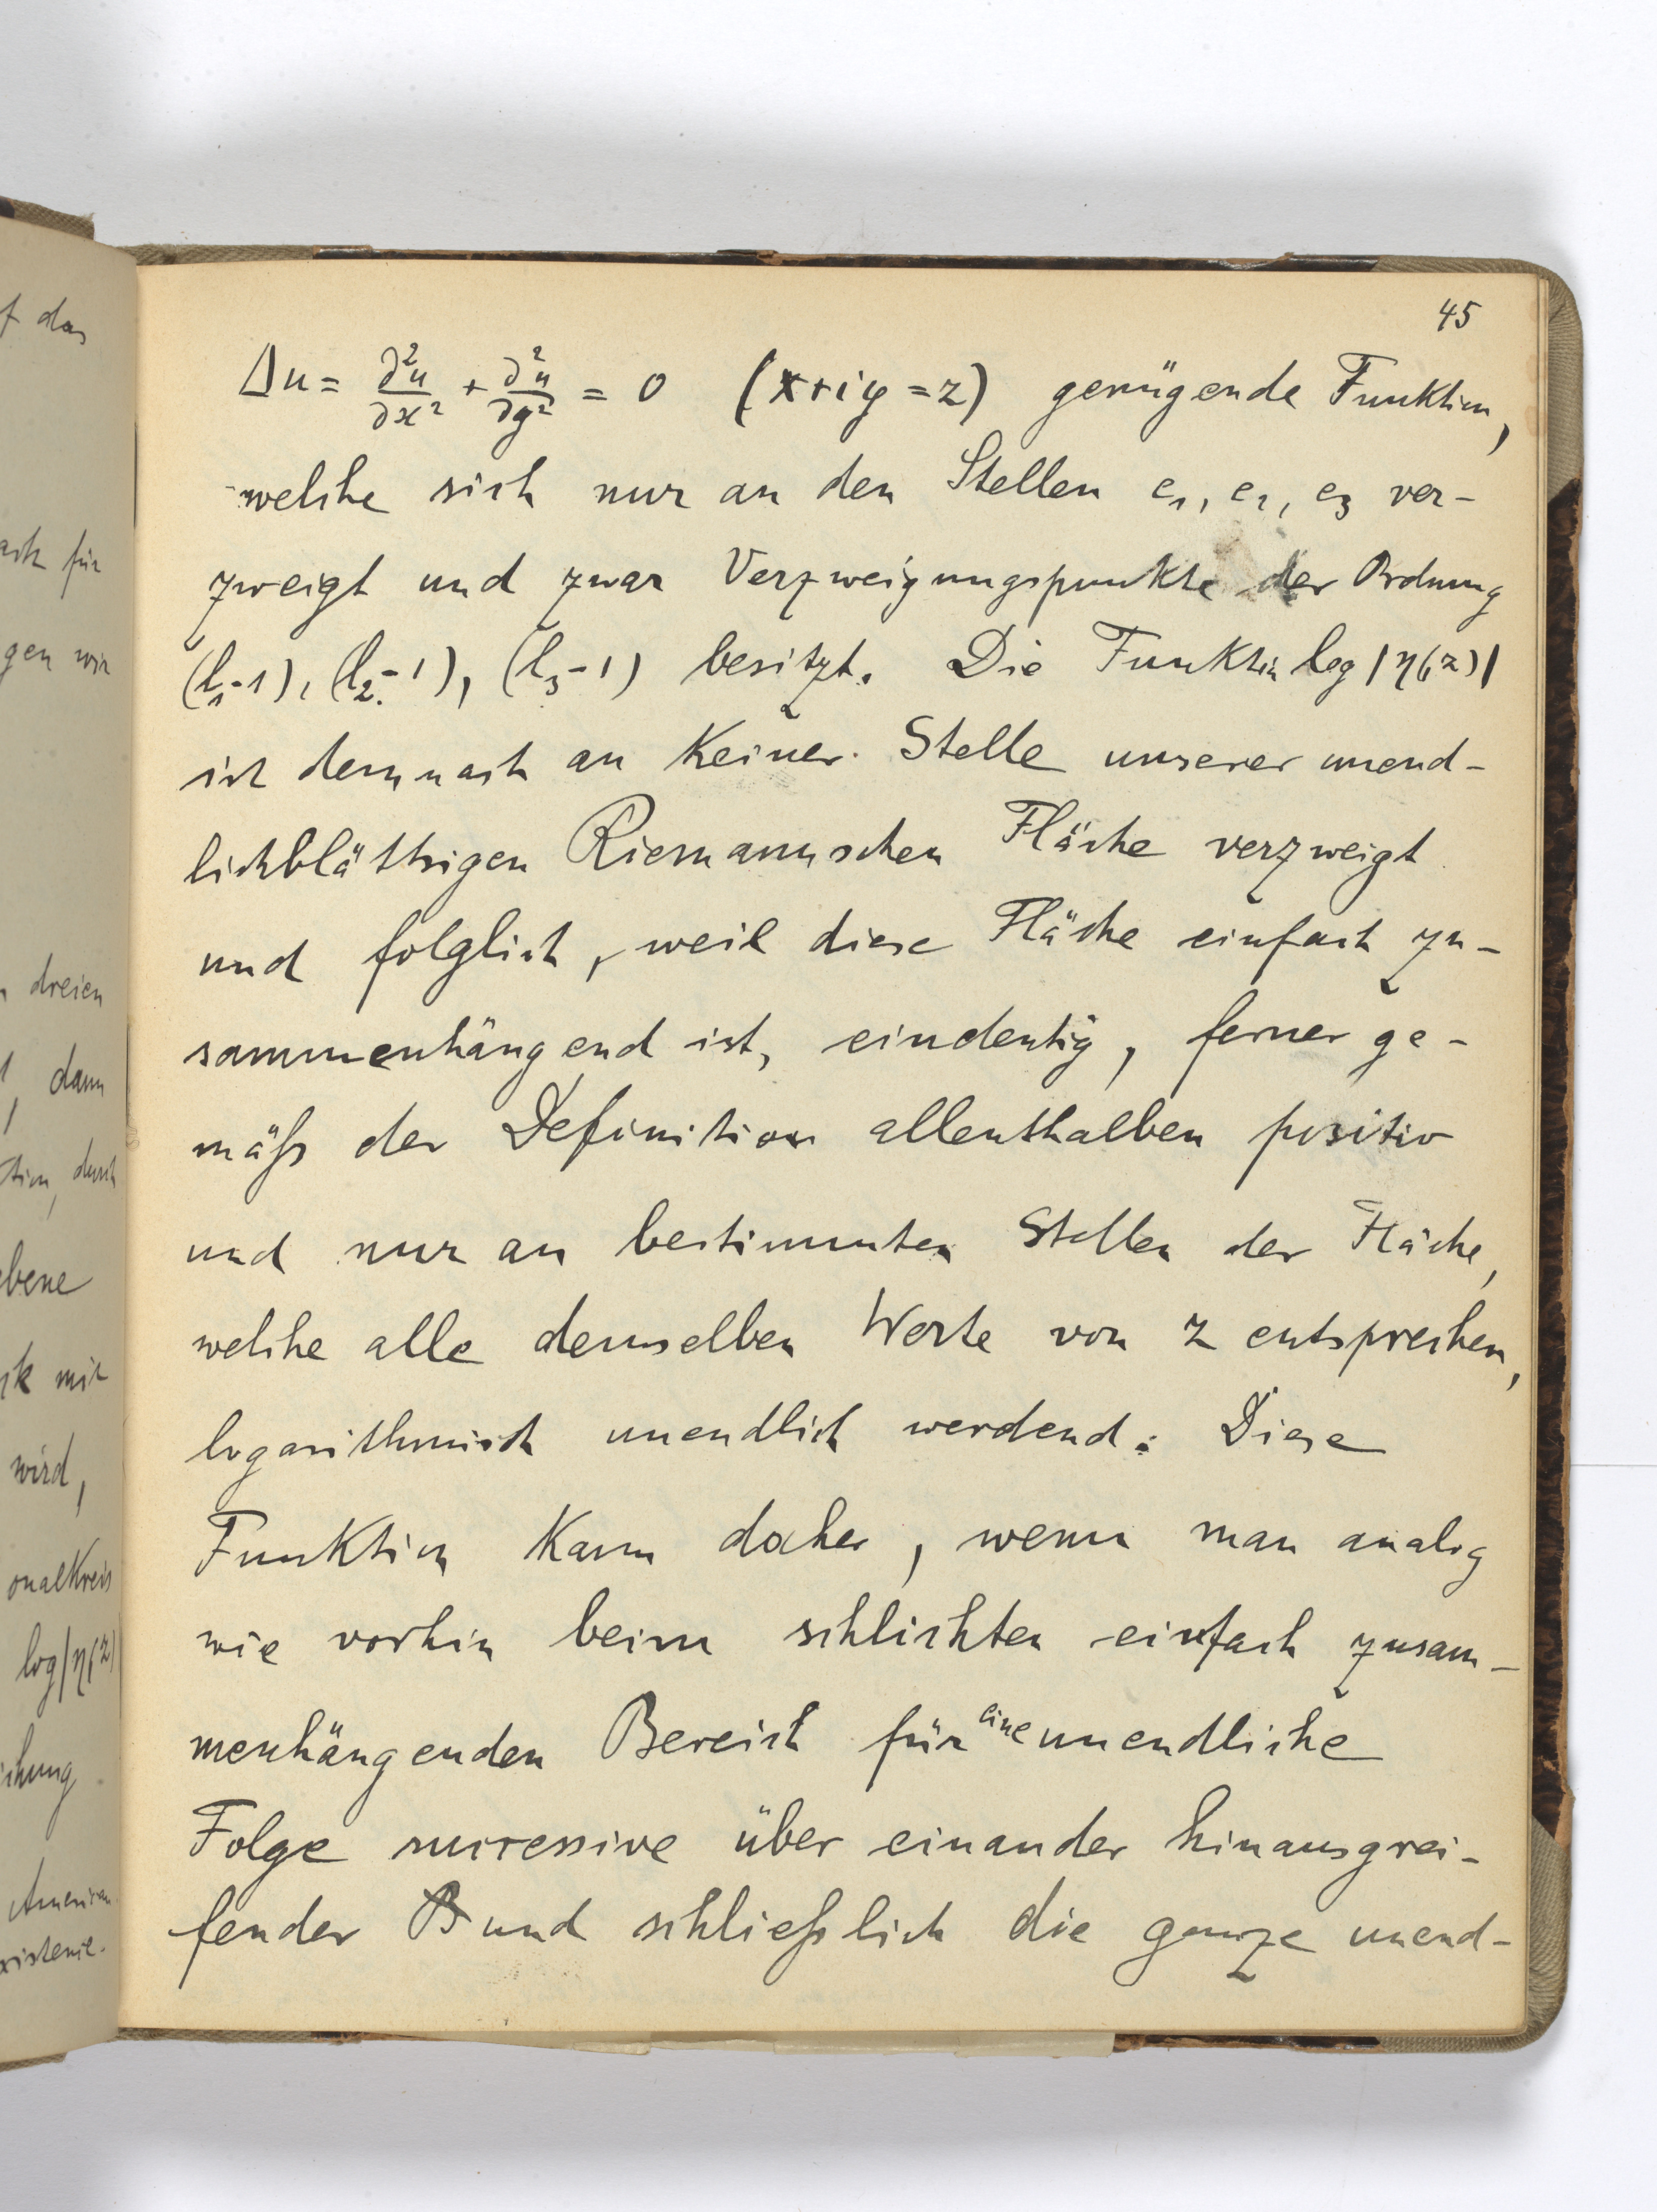 45
Δu = ∂²u/∂x² + ∂²u/∂y² = 0 (x+iy=z) genügende Funktion,
welche sich nur an den Stellen e₁, e₂, e₃ ver-
zweigt und zwar Verzweigungspunkte der Ordnung
(l₁-1), (l₂-1), (l₃-1) besitzt. Die Funktion log|η(z)|
ist demnach an keiner Stelle unserer unend-
lichblättrigen Riemannschen Fläche verzweigt
und folglich, weil diese Fläche einfach zu-
sammenhängend ist, eindeutig, ferner ge-
mäß der Definition allenthalben positiv
und nur an bestimmten Stellen der Fläche,
welche alle demselben Werte von z entsprechen,
logarithmisch unendlich werdend. Diese
Funktion kann daher, wenn man analog
wie vorhin beim schlichten einfach zusam-
menhängenden Bereich für eine unendliche
Folge successive über einander hinausgrei-
fender B und schließlich die ganze unend-
f das
für
gen wir
dreien
dann
durch
ebene
mit
wird,
onalkreis
log|η(z)|
chung
American